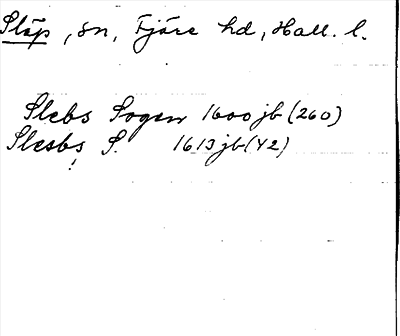 Släp, sn, Fjäre hd, Hall. l.
Slebs Sogen 1600 jb (260)
Slesbs S. 1613 jb (42)
!